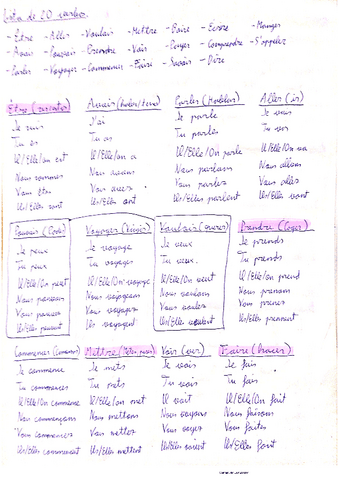 Lista de 20 verbes.
- Être - Aller - Vouloir - Mettre - Faire - Écrire - Manger
- Avoir - Pouvoir - Prendre - Voir - Payer - Comprendre - S'appeler
- Parler - Voyager - Commencer - Plaire - Savoir - Dire
Être Avoir Parler Aller (ir)
Je suis J'ai Je parle Je vais
Tu es Tu as Tu parles Tu vas
Il/Elle/On est Il/Elle/On a Il/Elle/On parle Il/Elle/On va
Nous sommes Nous avons Nous parlons Nous allons
Vous êtes Vous avez Vous parlez Vous allez
Il/Elles sont Il/Elles ont Il/Elles parlent Il/Elles vont
Pouvoir (Poder) Voyager Vouloir (querer) Prendre (Coger)
Je peux Je voyage Je veux Je prends
Tu peux Tu voyages Tu veux Tu prends
Il/Elle/On peut Il/Elle/On voyage Il/Elle/On veut Il/Elle/On prend
Nous pouvons Nous voyageons Nous voulons Nous prenons
Vous pouvez Vous voyagez Vous voulez Vous prenez
Il/Elles peuvent Ils voyagent Il/Elles veulent Il/Elles prennent
Commencer Mettre Voir (ver) Faire (hacer)
Je commence Je mets Je vois Je fais
Tu commences Tu mets Tu vois Tu fais
Il/Elle/On commence Il/Elle/On met Il voit Il/Elle/On fait
Nous commençons Nous mettons Nous voyons Nous faisons
Vous commencez Vous mettez Vous voyez Vous faites
Il/Elles commencent Il/Elles mettent Il/Elles voient Il/Elles font